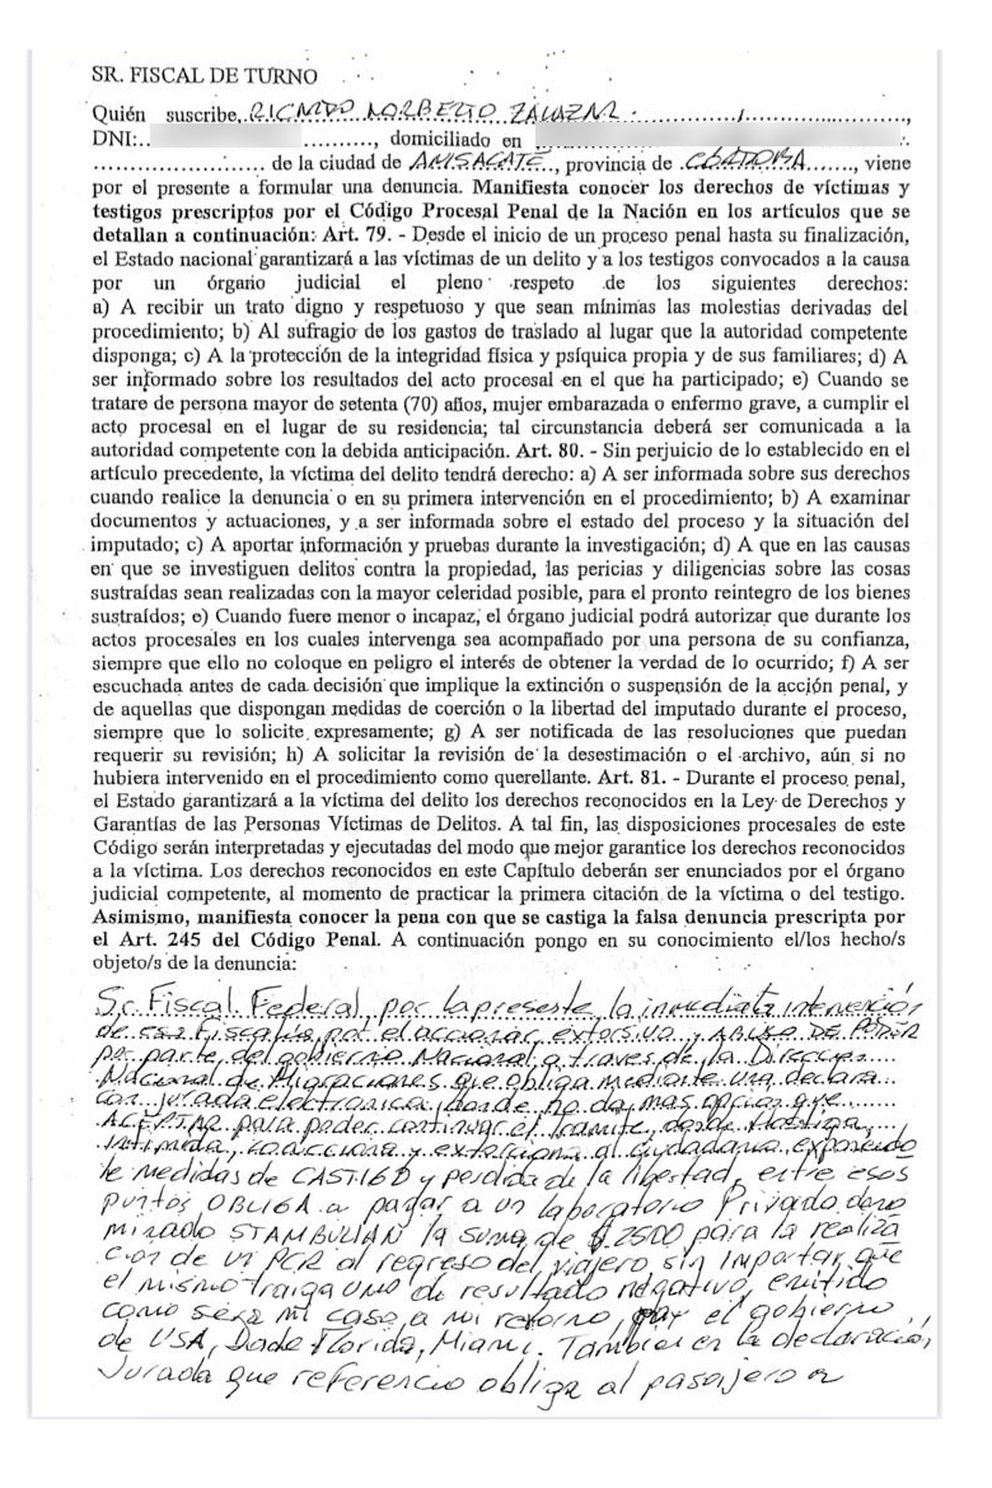 SR. FISCAL DE TURNO
Quién suscribe, RICARDO NORBERTO ZALAZAR
DNI:.. .........., domiciliado en
...................... de la ciudad de ANISACATE..., provincia de CORDOBA......, viene
por el presente a formular una denuncia. Manifiesta conocer los derechos de víctimas y
testigos prescriptos por el Código Procesal Penal de la Nación en los artículos que se
detallan a continuación: Art. 79. - Desde el inicio de un proceso penal hasta su finalización,
el Estado nacional garantizará a las víctimas de un delito y a los testigos convocados a la causa
por un órgano judicial el pleno respeto de los siguientes derechos:
a) A recibir un trato digno y respetuoso y que sean mínimas las molestias derivadas del
procedimiento; b) Al sufragio de los gastos de traslado al lugar que la autoridad competente
disponga; c) A la protección de la integridad física y psíquica propia y de sus familiares; d) A
ser informado sobre los resultados del acto procesal en el que ha participado; e) Cuando se
tratare de persona mayor de setenta (70) años, mujer embarazada o enfermo grave, a cumplir el
acto procesal en el lugar de su residencia; tal circunstancia deberá ser comunicada a la
autoridad competente con la debida anticipación. Art. 80. - Sin perjuicio de lo establecido en el
artículo precedente, la víctima del delito tendrá derecho: a) A ser informada sobre sus derechos
cuando realice la denuncia o en su primera intervención en el procedimiento; b) A examinar
documentos y actuaciones, y a ser informada sobre el estado del proceso y la situación del
imputado; c) A aportar información y pruebas durante la investigación; d) A que en las causas
en que se investiguen delitos contra la propiedad, las pericias y diligencias sobre las cosas
sustraídas sean realizadas con la mayor celeridad posible, para el pronto reintegro de los bienes
sustraídos; e) Cuando fuere menor o incapaz, el órgano judicial podrá autorizar que durante los
actos procesales en los cuales intervenga sea acompañado por una persona de su confianza,
siempre que ello no coloque en peligro el interés de obtener la verdad de lo ocurrido; f) A ser
escuchada antes de cada decisión que implique la extinción o suspensión de la acción penal, y
de aquellas que dispongan medidas de coerción o la libertad del imputado durante el proceso,
siempre que lo solicite expresamente; g) A ser notificada de las resoluciones que puedan
requerir su revisión; h) A solicitar la revisión de la desestimación o el archivo, aún si no
hubiera intervenido en el procedimiento como querellante. Art. 81. - Durante el proceso penal,
el Estado garantizará a la víctima del delito los derechos reconocidos en la Ley de Derechos y
Garantías de las Personas Víctimas de Delitos. A tal fin, las disposiciones procesales de este
Código serán interpretadas y ejecutadas del modo que mejor garantice los derechos reconocidos
a la víctima. Los derechos reconocidos en este Capítulo deberán ser enunciados por el órgano
judicial competente, al momento de practicar la primera citación de la víctima o del testigo.
Asimismo, manifiesta conocer la pena con que se castiga la falsa denuncia prescripta por
el Art. 245 del Código Penal. A continuación pongo en su conocimiento el/los hecho/s
objeto/s de la denuncia:
Sr. Fiscal Federal, por la presente, la inmediata intervención
de esa Fiscalía, por el accionar extorsivo y ABUSO DE PODER
por parte del gobierno Nacional a traves de la Dirección
Nacional de Migraciones que obliga mediante una declara
cion jurada electronica, donde no da mas opcion que
ACEPTAR para poder continuar el tramite, donde Hostiga,
intimida, coacciona y extorsiona al ciudadano exponiendo
le medidas de CASTIGO y perdida de la libertad, entre esos
puntos OBLIGA a pagar a un laboratorio Privado deno
minado STAMBULIAN la suma de $ 2500 para la realiza
cion de un PCR al regreso del viajero, sin importar que
el mismo traiga uno de resultado negativo, emitido
como sera mi caso, a mi retorno, por el gobierno
de USA, Dade Florida, Miami. Tambien en la declaración
Jurada que referencio obliga al pasajero a